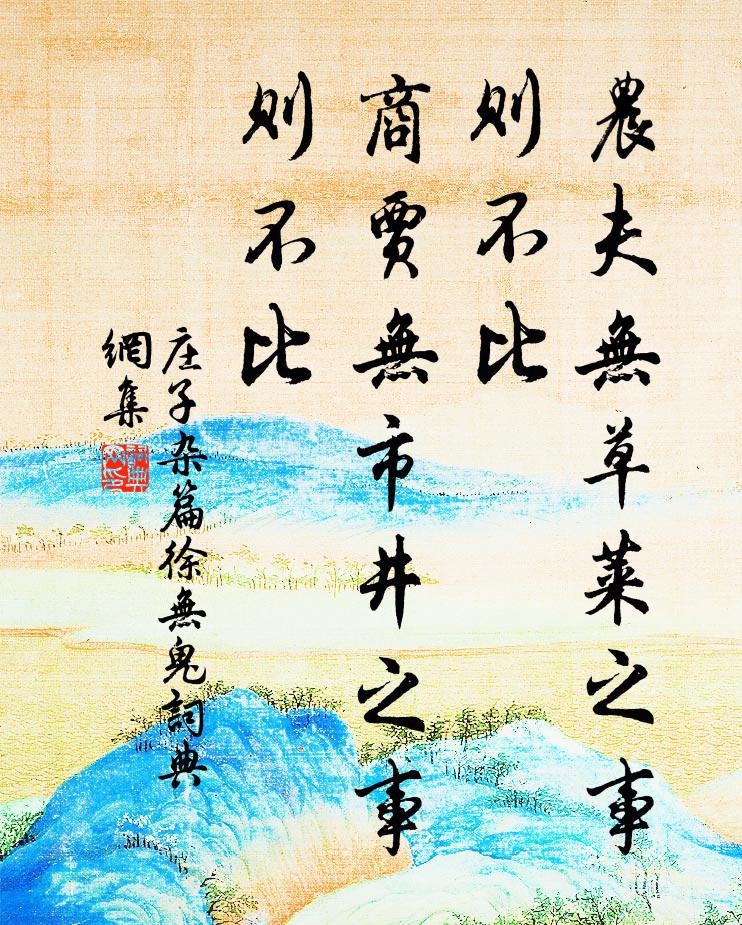 農夫無草萊之事
則不比
商賈無市井之事
則不比
庄子杂篇徐無鬼詞典
網集